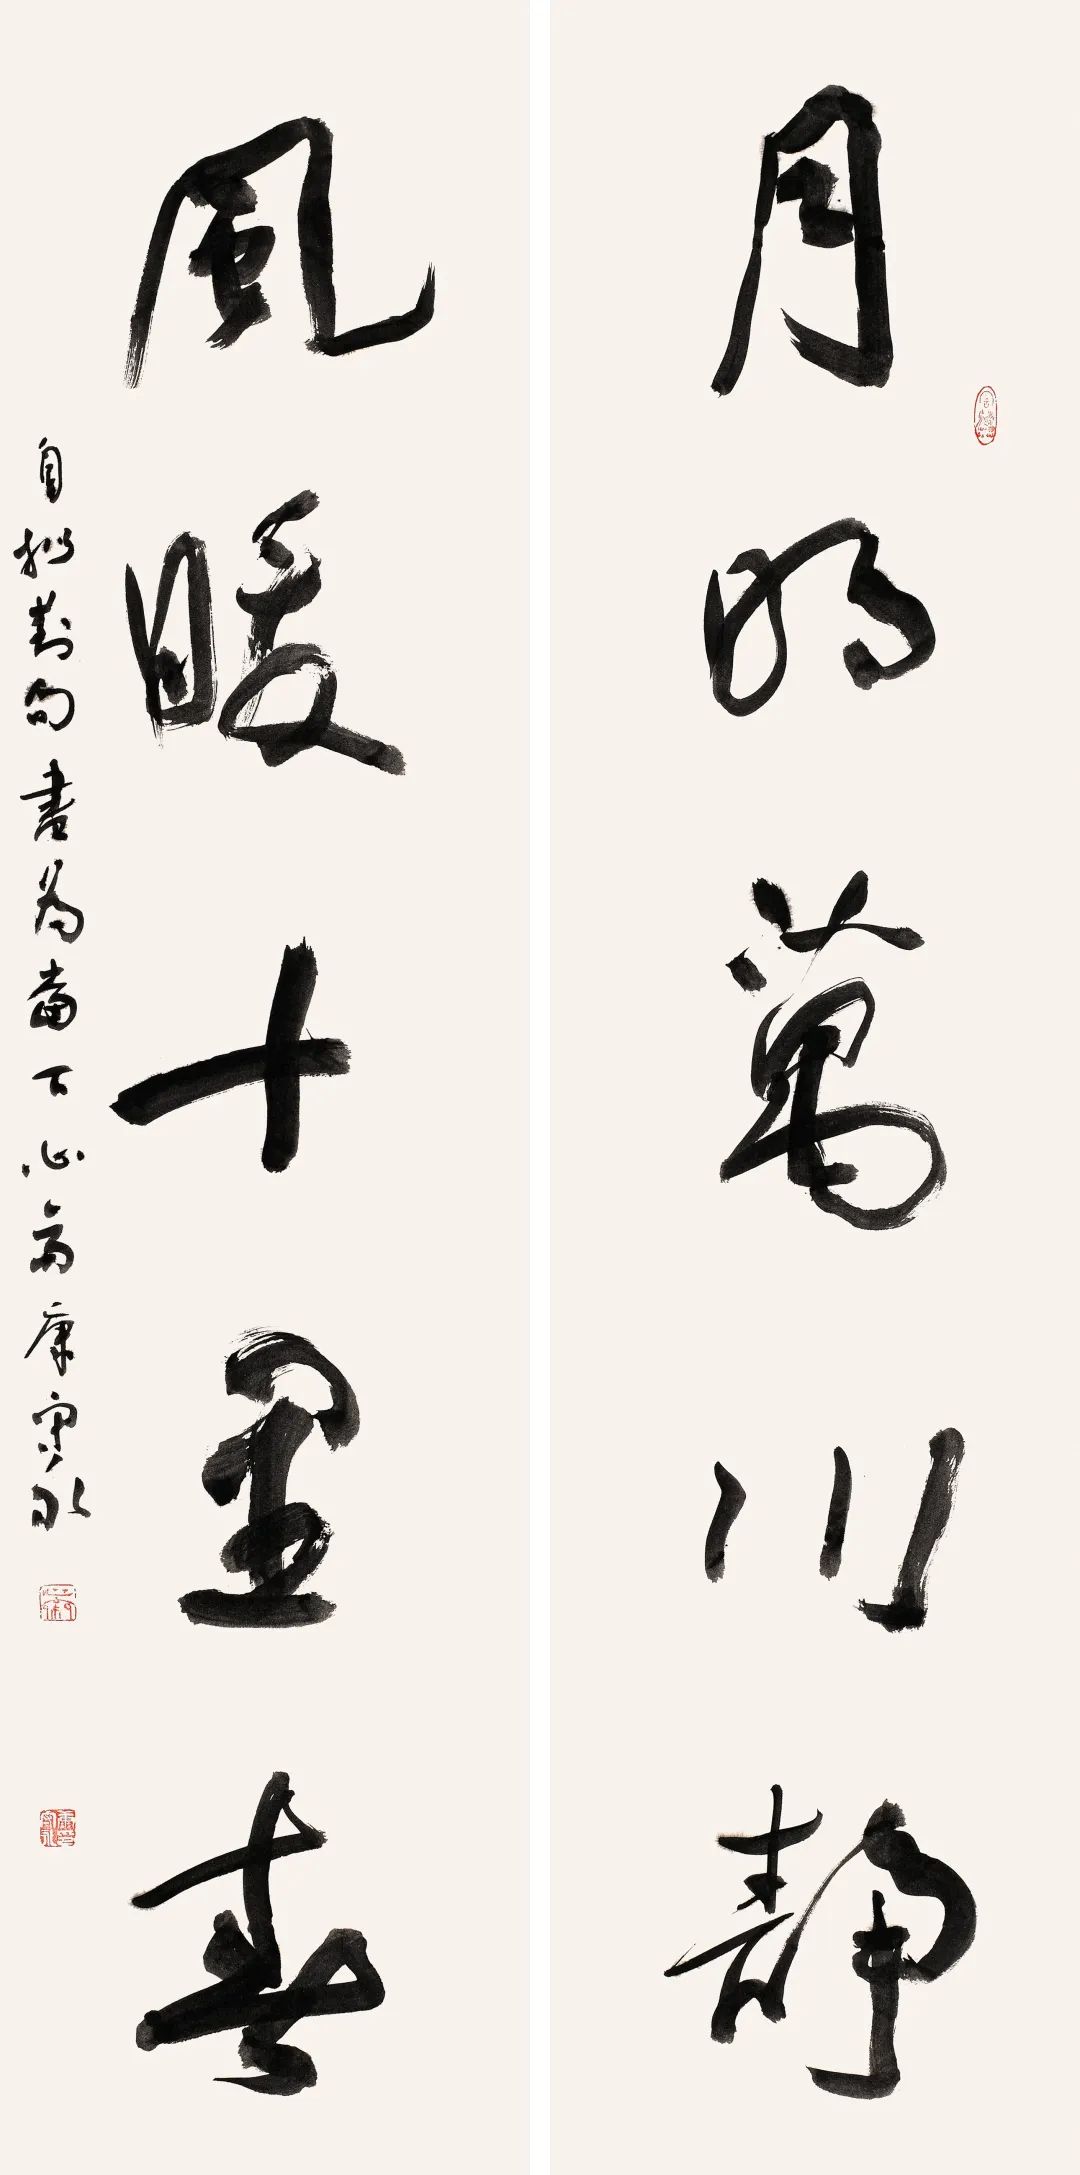 月明萬川靜
風暖十里春
自擬對句書為當下心齋康守永